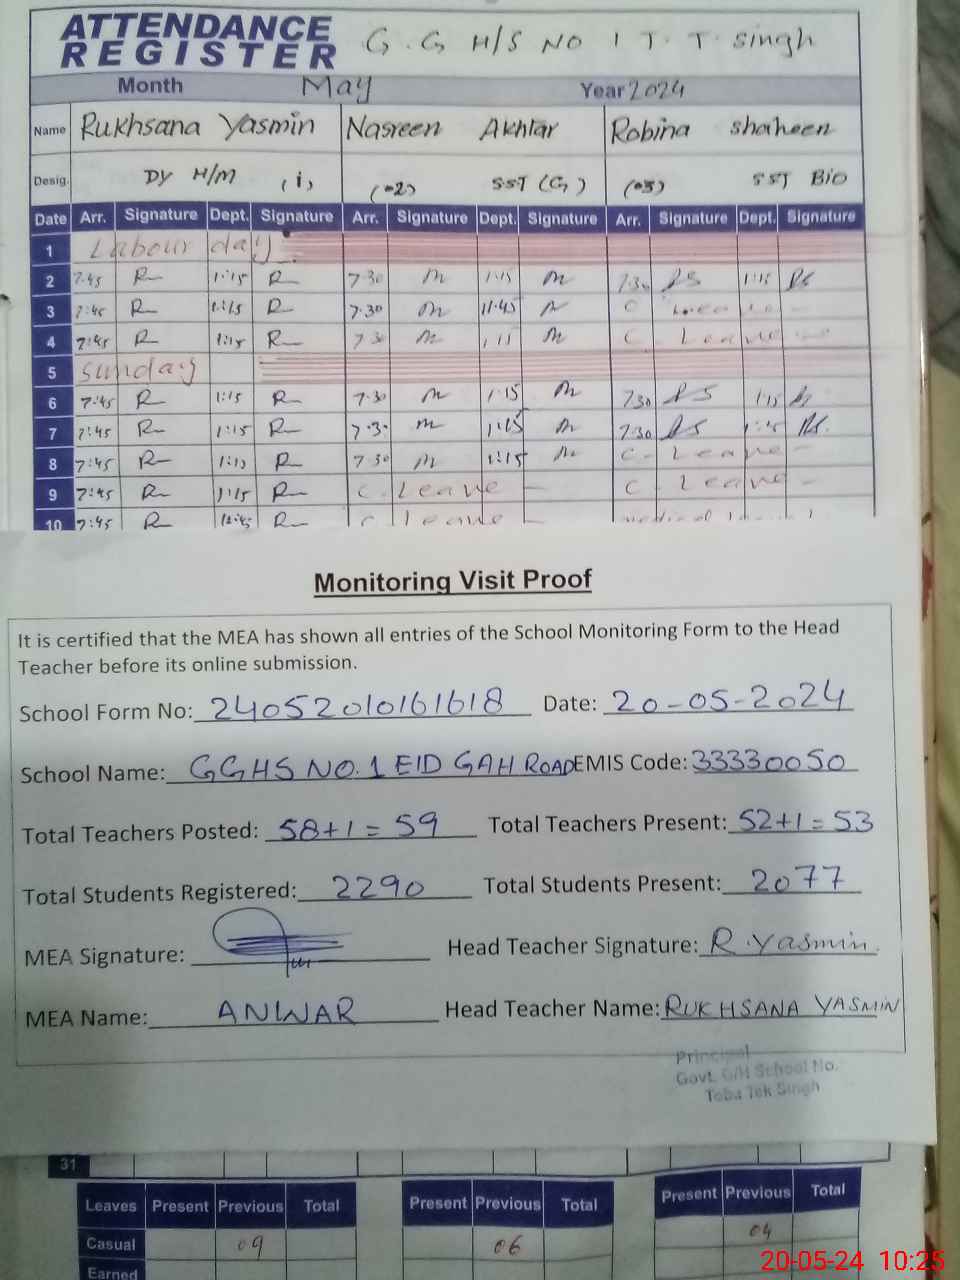 ATTENDANCE REGISTER G.G H/S NO 1 T.T. Singh
Month May Year 2024
Name Rukhsana Yasmin Nasreen Akhtar Robina Shaheen
Desig. DY H/M (1) (02) SST (G) (03) SST BIO
Date Arr. Signature Dept. Signature Arr. Signature Dept. Signature Arr. Signature Dept. Signature
1 Labour day.
2 7:45 R 1:15 R 7.30 1:15 7.30 RS 1:15 RS
3 7:45 R 1:15 R 7.30 11.45 C Leave
4 7:45 R 1:15 R 7.30 C. Leave
5 Sunday
6 7:45 R 1:15 R 7.30 1.15 7.30 RS 1.15
7 7:45 R 1:15 R 7.30 1:15 7.30 RS RS.
8 7:45 R R 7.30 1:15 C. Leave
9 7:45 R 1:15 R C. Leave C. Leave
10 7:45 R 12:45 R C leave
Monitoring Visit Proof
It is certified that the MEA has shown all entries of the School Monitoring Form to the Head
Teacher before its online submission.
School Form No: 24052010161618 Date: 20-05-2024
School Name: GGHS NO.1 EID GAH ROAD EMIS Code: 33330050
Total Teachers Posted: 58+1 = 59 Total Teachers Present: 52+1 = 53
Total Students Registered: 2290 Total Students Present: 2077
MEA Signature: Head Teacher Signature: R.Yasmin.
MEA Name: ANWAR Head Teacher Name: RUKHSANA YASMIN
Principal
Govt. G/H School No.
Toba Tek Singh
31
Leaves Present Previous Total Present Previous Total Present Previous Total
Casual 09 06 04
Earned
20-05-24 10:25